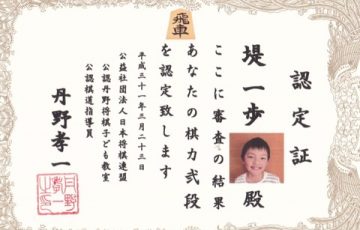 飛車
認定証
堤一歩殿
ここに審査の結果
あなたの棋力弐段
を認定致します
平成三十一年三月二十三日
公益社団法人日本将棋連盟
公認丹野将棋子ども教室
公認棋道指導員
丹野孝一